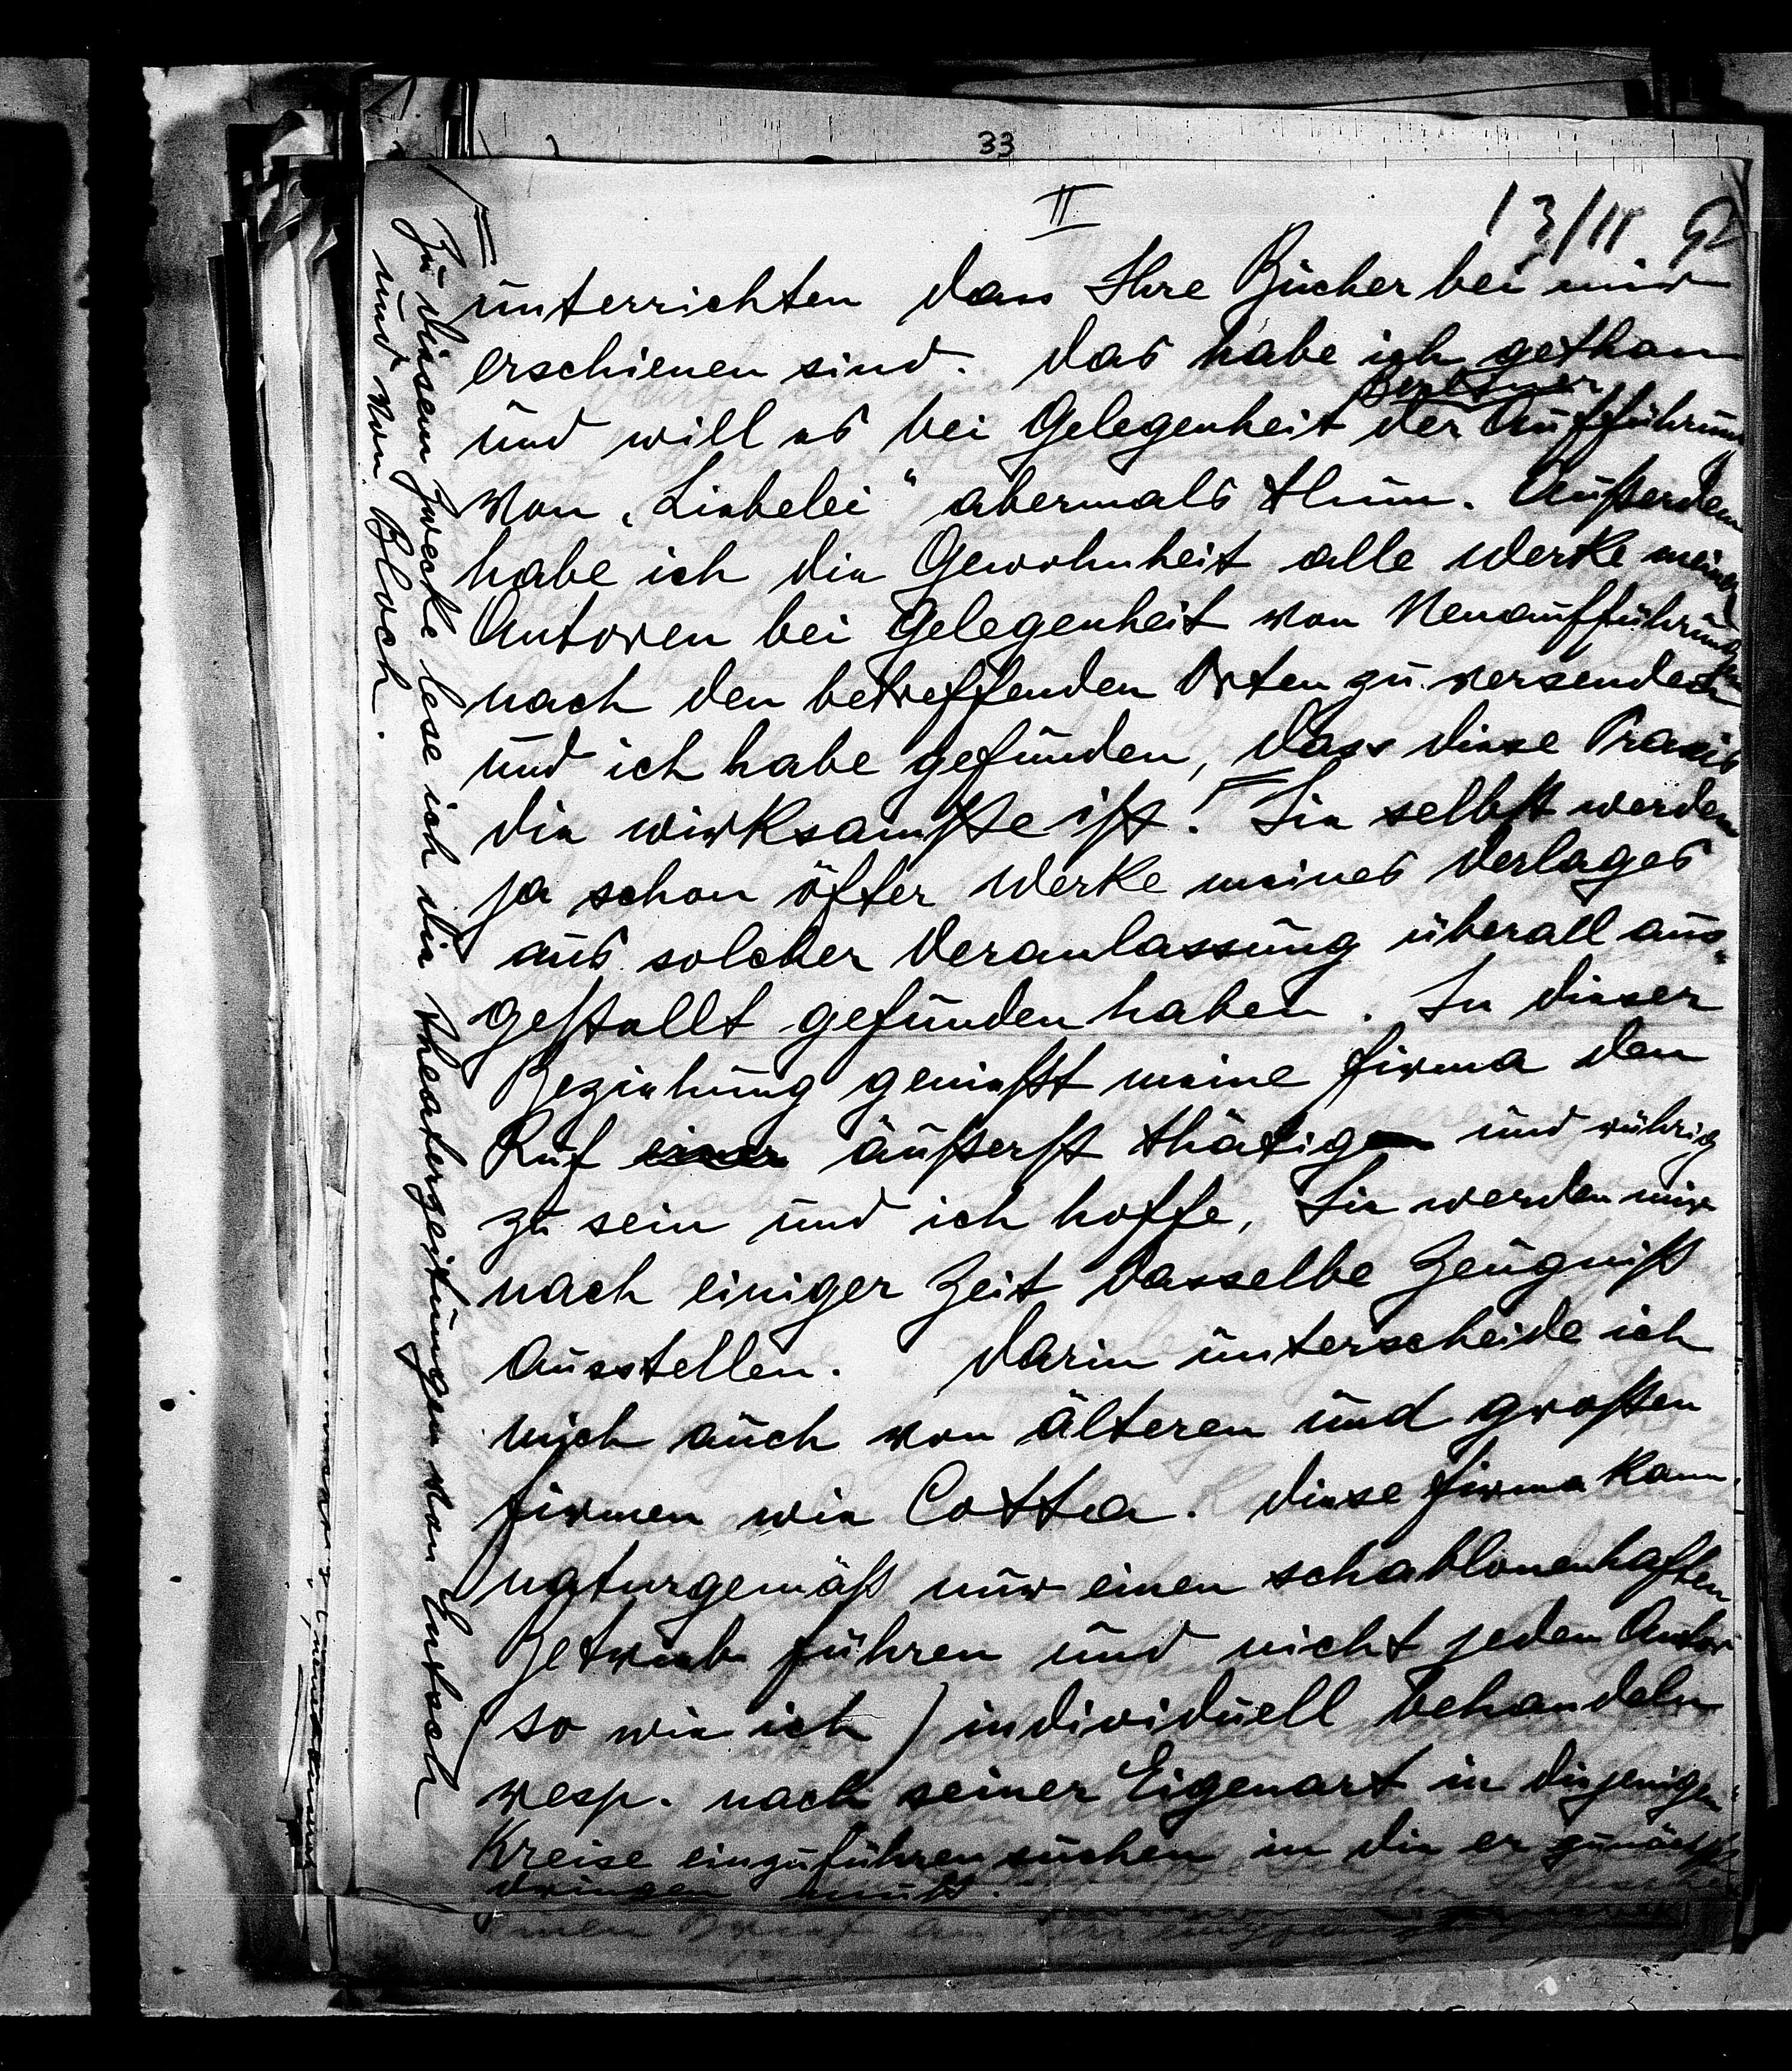 33
II
13/11 95
unterrichten dass Ihre Bücher bei mir
erschienen sind. Das habe ich gethan
Berliner
und will es bei Gelegenheit der Aufführung
von „Liebelei“ abermals thun. Außerdem
habe ich die Gewohnheit alle Werke meiner
Autoren bei Gelegenheit von Neuaufführungen
nach den betreffenden Orten zu versenden
und ich habe gefunden, dass diese Praxis
die wirksamste ist! Sie selbst werden
ja schon öfter Werke meines Verlages
aus solcher Veranlassung überall aus-
gestellt gefunden haben. In dieser
Beziehung genießt meine Firma den
Ruf einer äußerst thätig und rührig
zu sein und ich hoffe, Sie werden mir
nach einiger Zeit dasselbe Zeugniß
ausstellen. Darin unterscheide ich
mich auch von älteren und großen
Firmen wie Cotta. Diese Firma kann
naturgemäß nur einen schablonenhaften
Betrieb führen und nicht jeden Autor
(so wie ich) individuell behandeln
resp. nach seiner Eigenart in diejenigen
Kreise einzuführen suchen in die er zunächst
dringen muß.
Zu diesem Zwecke lese ich die Theaterzeitungen von Entsch
und von Bloch.